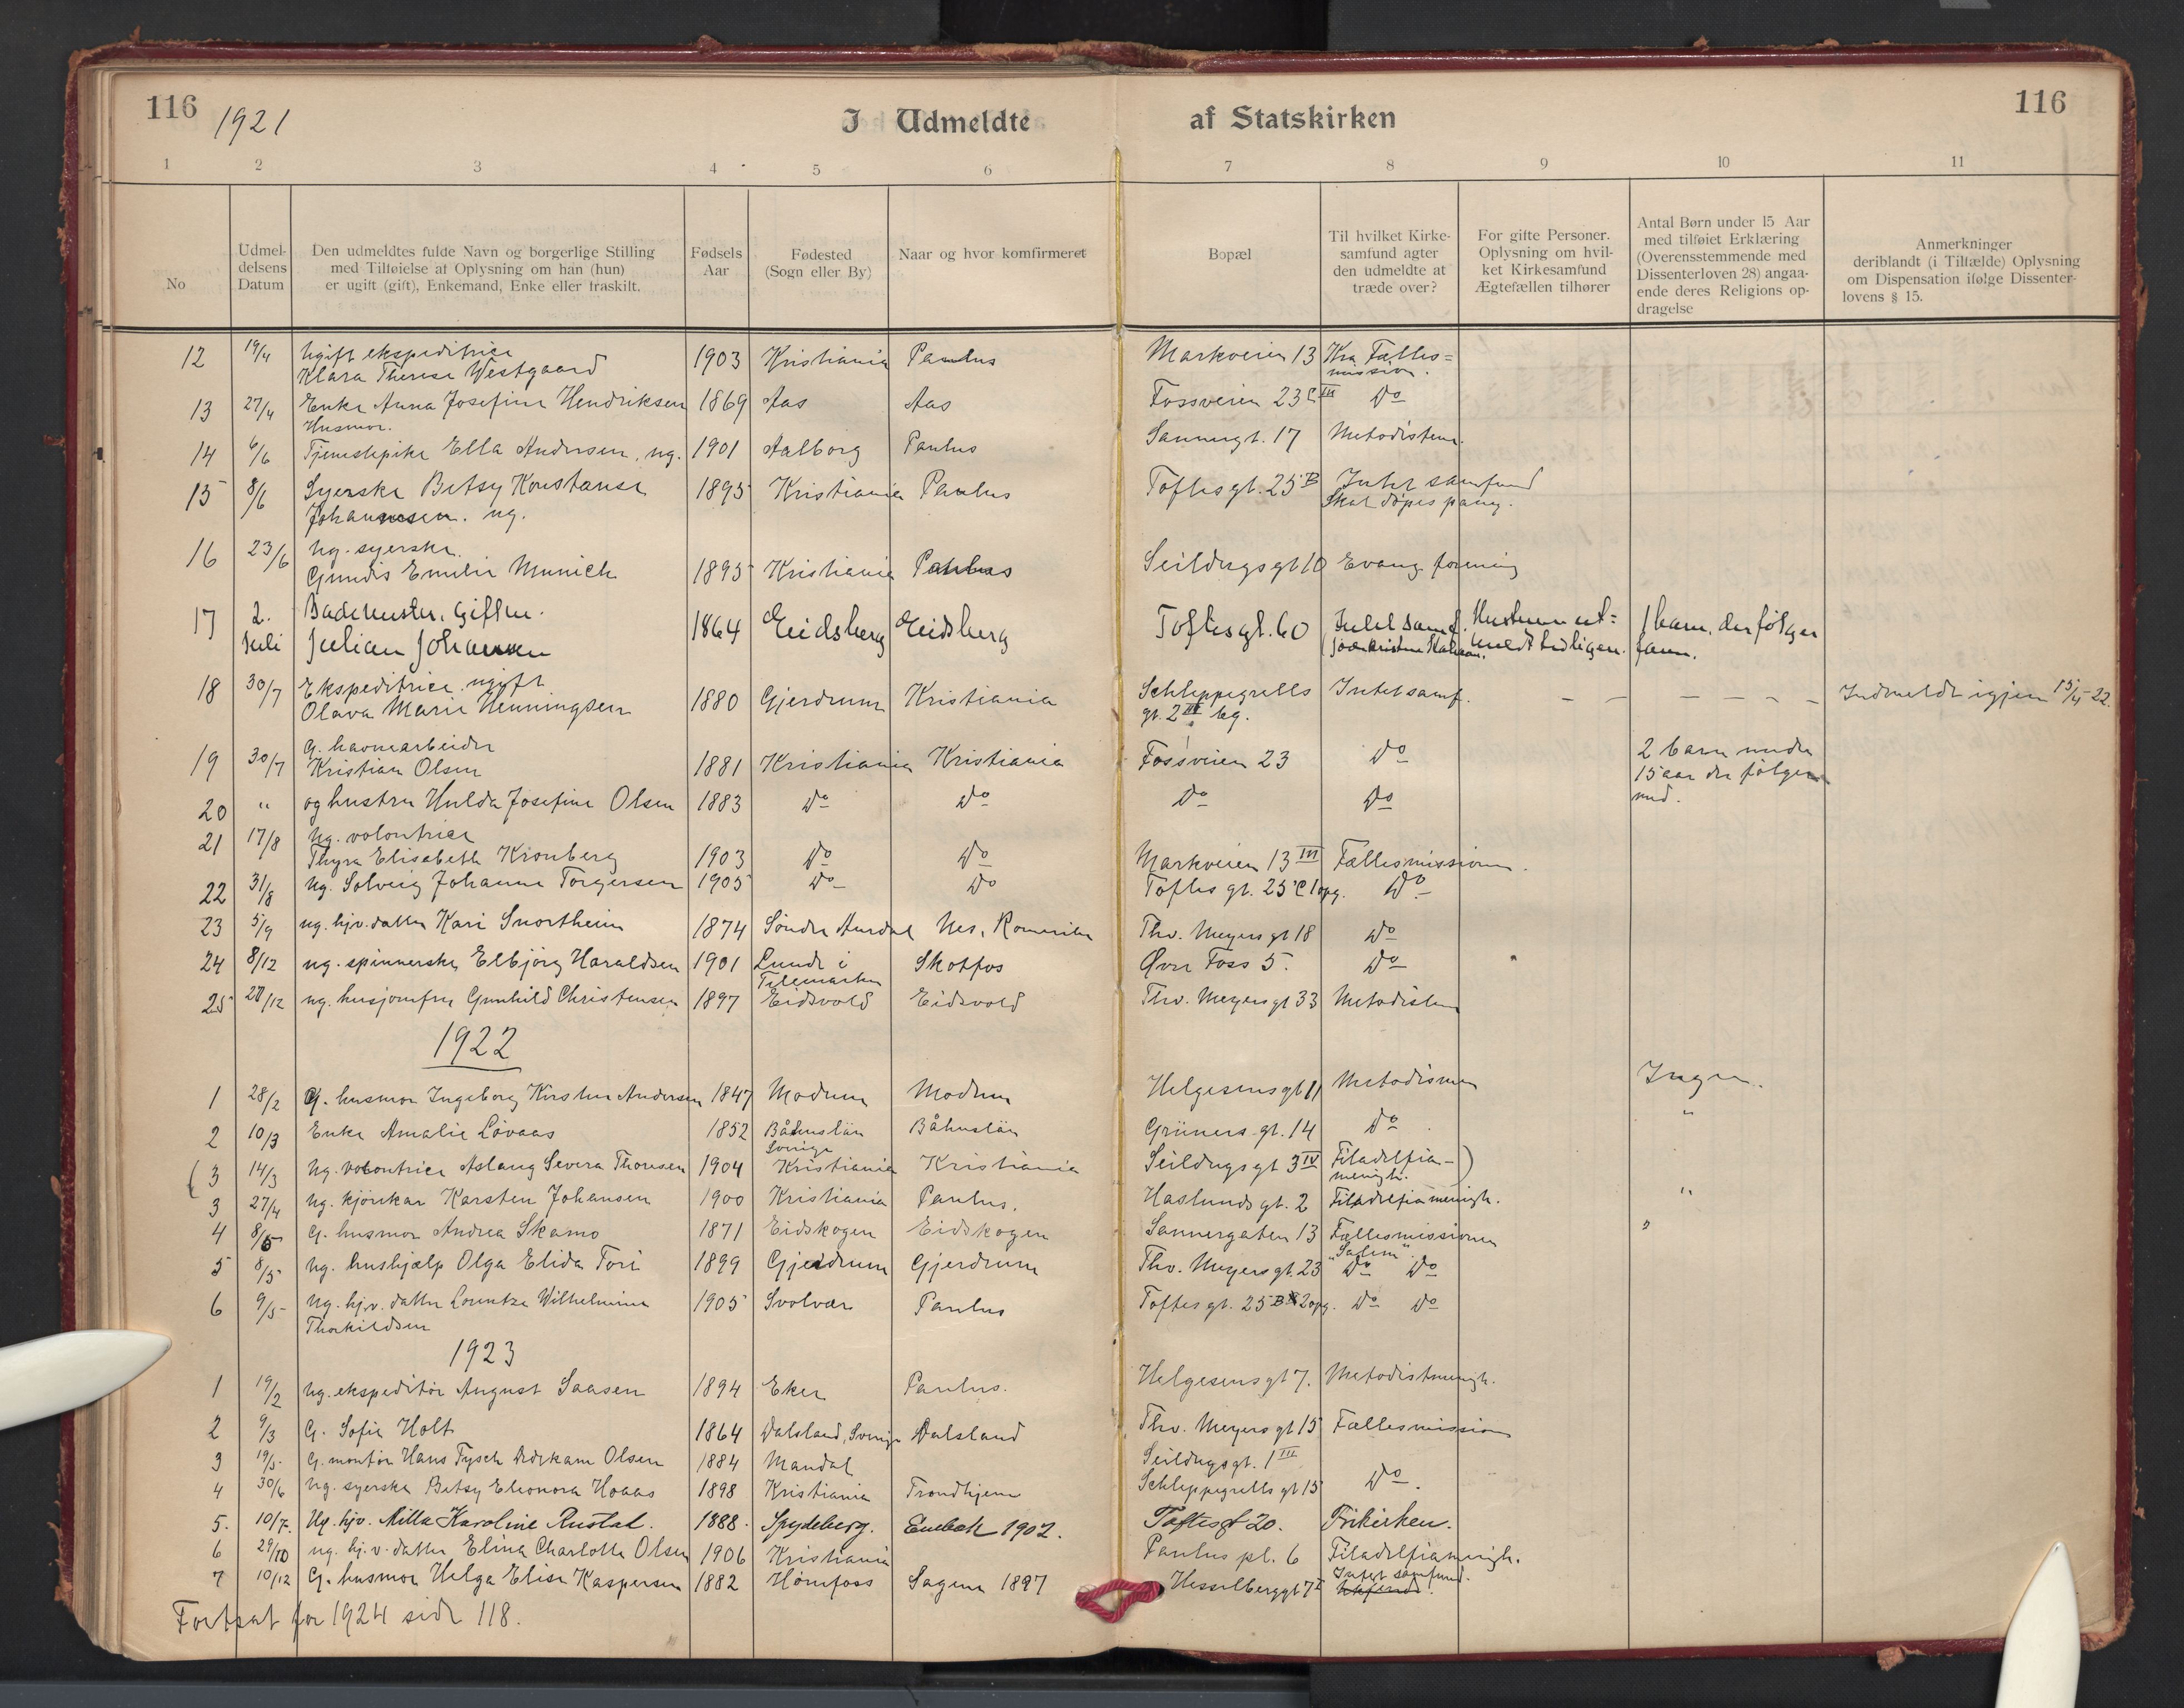 116 1921 I Udmeldte af Statskirken 116
1 2 3 4 5 6 7 8 9 10 11
No
Udmel-
delsens
Datum
Den udmeldtes fulde Navn og borgerlige Stilling
med Tilføielse af Oplysning om han (hun)
er ugift (gift), Enkemand, Enke eller fraskilt.
Fødsels
Aar
Fødested
(Sogn eller By)
Naar og hvor komfirmeret
Bopæl
Til hvilket Kirke-
samfund agter
den udmeldte at
træde over?
For gifte Personer.
Oplysning om hvil-
ket Kirkesamfund
Ægtefællen tilhører
Antal Børn under 15 Aar
med tilføiet Erklæring
(Overensstemmende med
Dissenterloven 28) angaa-
ende deres Religions op-
dragelse
Anmerkninger
deriblandt (i Tilfælde) Oplysning
om Dispensation ifølge Dissenter-
lovens § 15.
12 19/4 Ugift ekspeditrice 1903 Kristiania Paulus Markveien 13 Kra Fælles=
Klara Therese Westgaard mission.
13 27/4 Enke Anna Josefine Hendriksen 1869 Aas Aas Fossveien 23 C III Do
Husmor.
14 6/6 Tjenestepike Ella Andersen, ug. 1901 Aalborg Paulus Sannergt. 17 Metodistern.
15 8/6 Syerske Betsy Konstanse 1895 Kristiania Paulus Toftesgt. 25 B Intet samfund
Johannesen. ug. Skal döpes paany.
16 23/6 Ug. syerske.
Gundis Emilie Munich 1895 Kristiania Paulus Seildugsgt 10 Evang. forening
17 2. Bademester, Giften. 1864 Eidsberg Eidsberg Toftesgt. 60 Intet samf. Hustruen ut= 1 barn, der følger
Juli Julian Johansen meldt tidligere. faren.
18 30/7 Ekspeditrice ugift
Olava Marie Henningsen 1880 Gjerdrum Kristiania Schleppegrells Intet samf. – – – – – – Indmeldt igjen 15/4 22.
gt. 2 III bg.
19 30/7 G. havnearbeider
Kristian Olsen 1881 Kristiania Kristiania Fossveien 23 Do 2 barn under
15 aar der følger
med.
20 " og hustru Hulda Josefine Olsen 1883 Do Do Do Do
21 17/8 Ug. volontrice
Thyra Elisabeth Kronberg 1903 Do Do Markveien 13 III Fællesmissionen.
22 31/8 Ug. Solveig Johanne Torgersen 1905 Do Do Toftes gt. 25 C 1 opg. Do
23 5/9 ug. hjv. datter Kari Snortheim 1874 Söndre Aurdal Nes, Romerike Thv. Meyers gt 18 Do
24 8/12 ug. spinnerske Elbjörg Haraldsen 1901 Lunde i Skotfos Øvre Foss 5. Do
Telemarken
25 28/12 ug. husjomfru Gunhild Christensen 1897 Eidsvold Eidsvold Thv. Meyers gt 33 Metodisten
1922
1 28/2 G. husmor Ingeborg Kirstine Andersen 1847 Modum Modum Helgesens gt 11 Metodismen Ingen.
2 10/3 Enke Amalie Lövaas 1852 Båhuslän Båhuslän Grüners gt. 14 Do "
Sverige
(3 14/3 Ug. volontrice Aslaug Severa Thoresen 1904 Kristiania Kristiania Seildugsgt 3 IV Filadelfia-)
menigh.
3 27/4 Ug. kjörekar Karsten Johansen 1900 Kristiania Paulus. Haslunds gt. 2 Filadelfiamenigh. "
4 8/5 G. husmor Andrea Skamo 1871 Eidskogen Eidskogen Sannergaten 13 Fællesmissionen "
"Salem".
5 8/5 Ug. hushjælp Olga Elida Tori 1899 Gjerdrum Gjerdrum Thv. Meyers gt. 23 Do Do
6 9/5 Ug. hj.v. datter Lorentze Wilhelmine 1905 Svolvær Paulus Toftes gt. 25 B 2 opg. Do Do
Thorkildsen
1923
1 19/2 Ug. ekspeditör August Saasen 1894 Eker Paulus. Helgesens gt 7. Metodistmenigh.
2 9/3 G. Sofie Holt 1864 Dalsland, Sverige Dalsland Thv. Meyers gt 15 Fællesmission
3 19/5 G. montör Hans Tysch Olsen 1884 Mandal Seildugsgt. 1 III
4 30/6 Ug. syerske Betsy Eleonora Hoaas 1898 Kristiania Trondhjem Schleppegrells gt 15 Do.
5. 10/7. Ug. hjv. Milla Karoline Rustad. 1888. Spydeberg. Enebak 1902. Toftesgt 20. Frikirken.
6 29/10 ug. hj.v. datter Elina Charlotte Olsen 1906 Kristiania Paulus pl. 6 Filadelfiamenigh.
7 10/12 G. husmor Helga Elise Kaspersen 1882 Hönefoss Sagene 1897 Hesselberggt 7 I Intet samfund.
Fortsat for 1924 side 118.